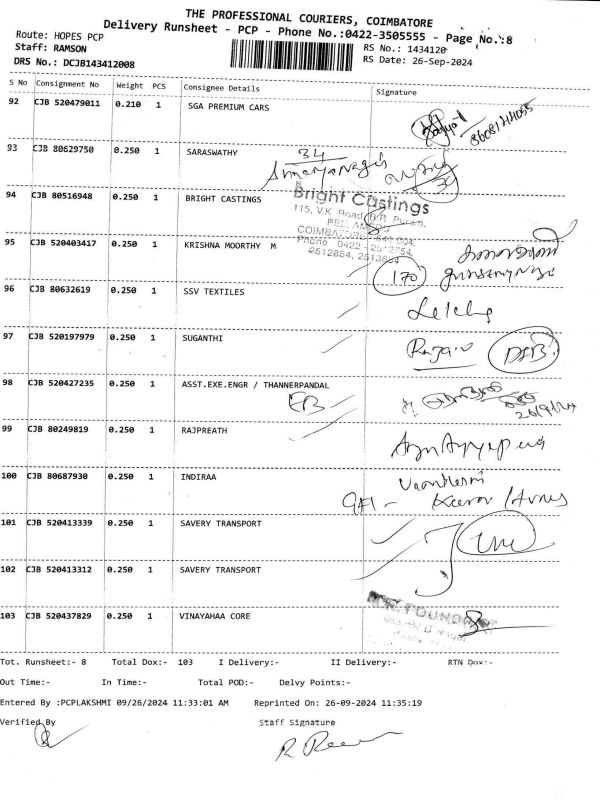 THE PROFESSIONAL COURIERS, COIMBATORE
Delivery Runsheet - PCP - Phone No.:0422-3505555 - Page No.:8
Route: HOPES PCP
Staff: RAMSON
RS No.: 1434120
DRS No.: DCJB143412008
RS Date: 26-Sep-2024
S No Consignment No Weight PCS Consignee Details Signature
92 CJB 520479011 0.210 1 SGA PREMIUM CARS
93 CJB 80629750 0.250 1 SARASWATHY 34
94 CJB 80516948 0.250 1 BRIGHT CASTINGS
Bright Castings
115, V.K. Road
95 CJB 520403417 0.250 1 KRISHNA MOORTHY M
170
96 CJB 80632619 0.250 1 SSV TEXTILES
97 CJB 520197979 0.250 1 SUGANTHI
98 CJB 520427235 0.250 1 ASST.EXE.ENGR / THANNERPANDAL
EB 26/9/24
99 CJB 80249819 0.250 1 RAJPREATH
100 CJB 80687930 0.250 1 INDIRAA
101 CJB 520413339 0.250 1 SAVERY TRANSPORT
102 CJB 520413312 0.250 1 SAVERY TRANSPORT
103 CJB 520437829 0.250 1 VINAYAHAA CORE
Tot. Runsheet:- 8 Total Dox:- 103 I Delivery:- II Delivery:- RTN Dox:-
Out Time:- In Time:- Total POD:- Delvy Points:-
Entered By :PCPLAKSHMI 09/26/2024 11:33:01 AM Reprinted On: 26-09-2024 11:35:19
Verified By Staff Signature